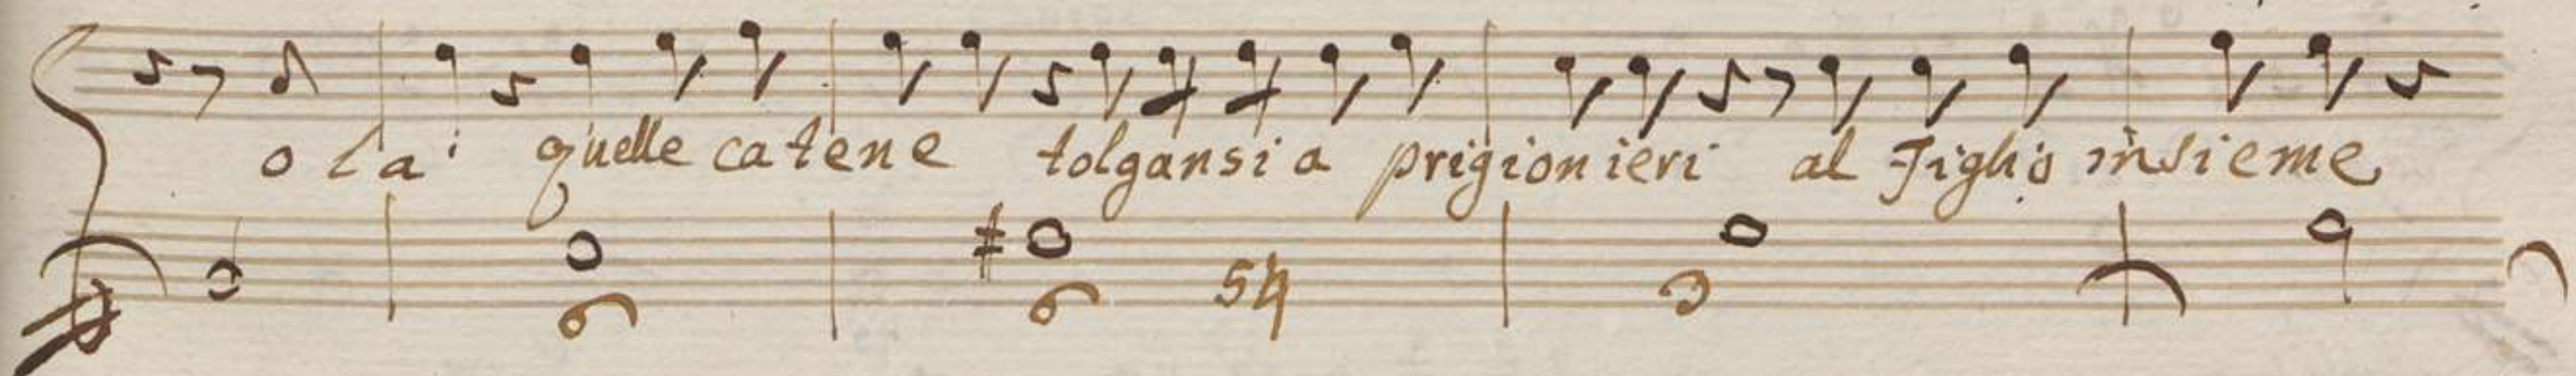 o la quelle catene tolgansi a prigionieri al Figlio insieme
6 6 5 4 3